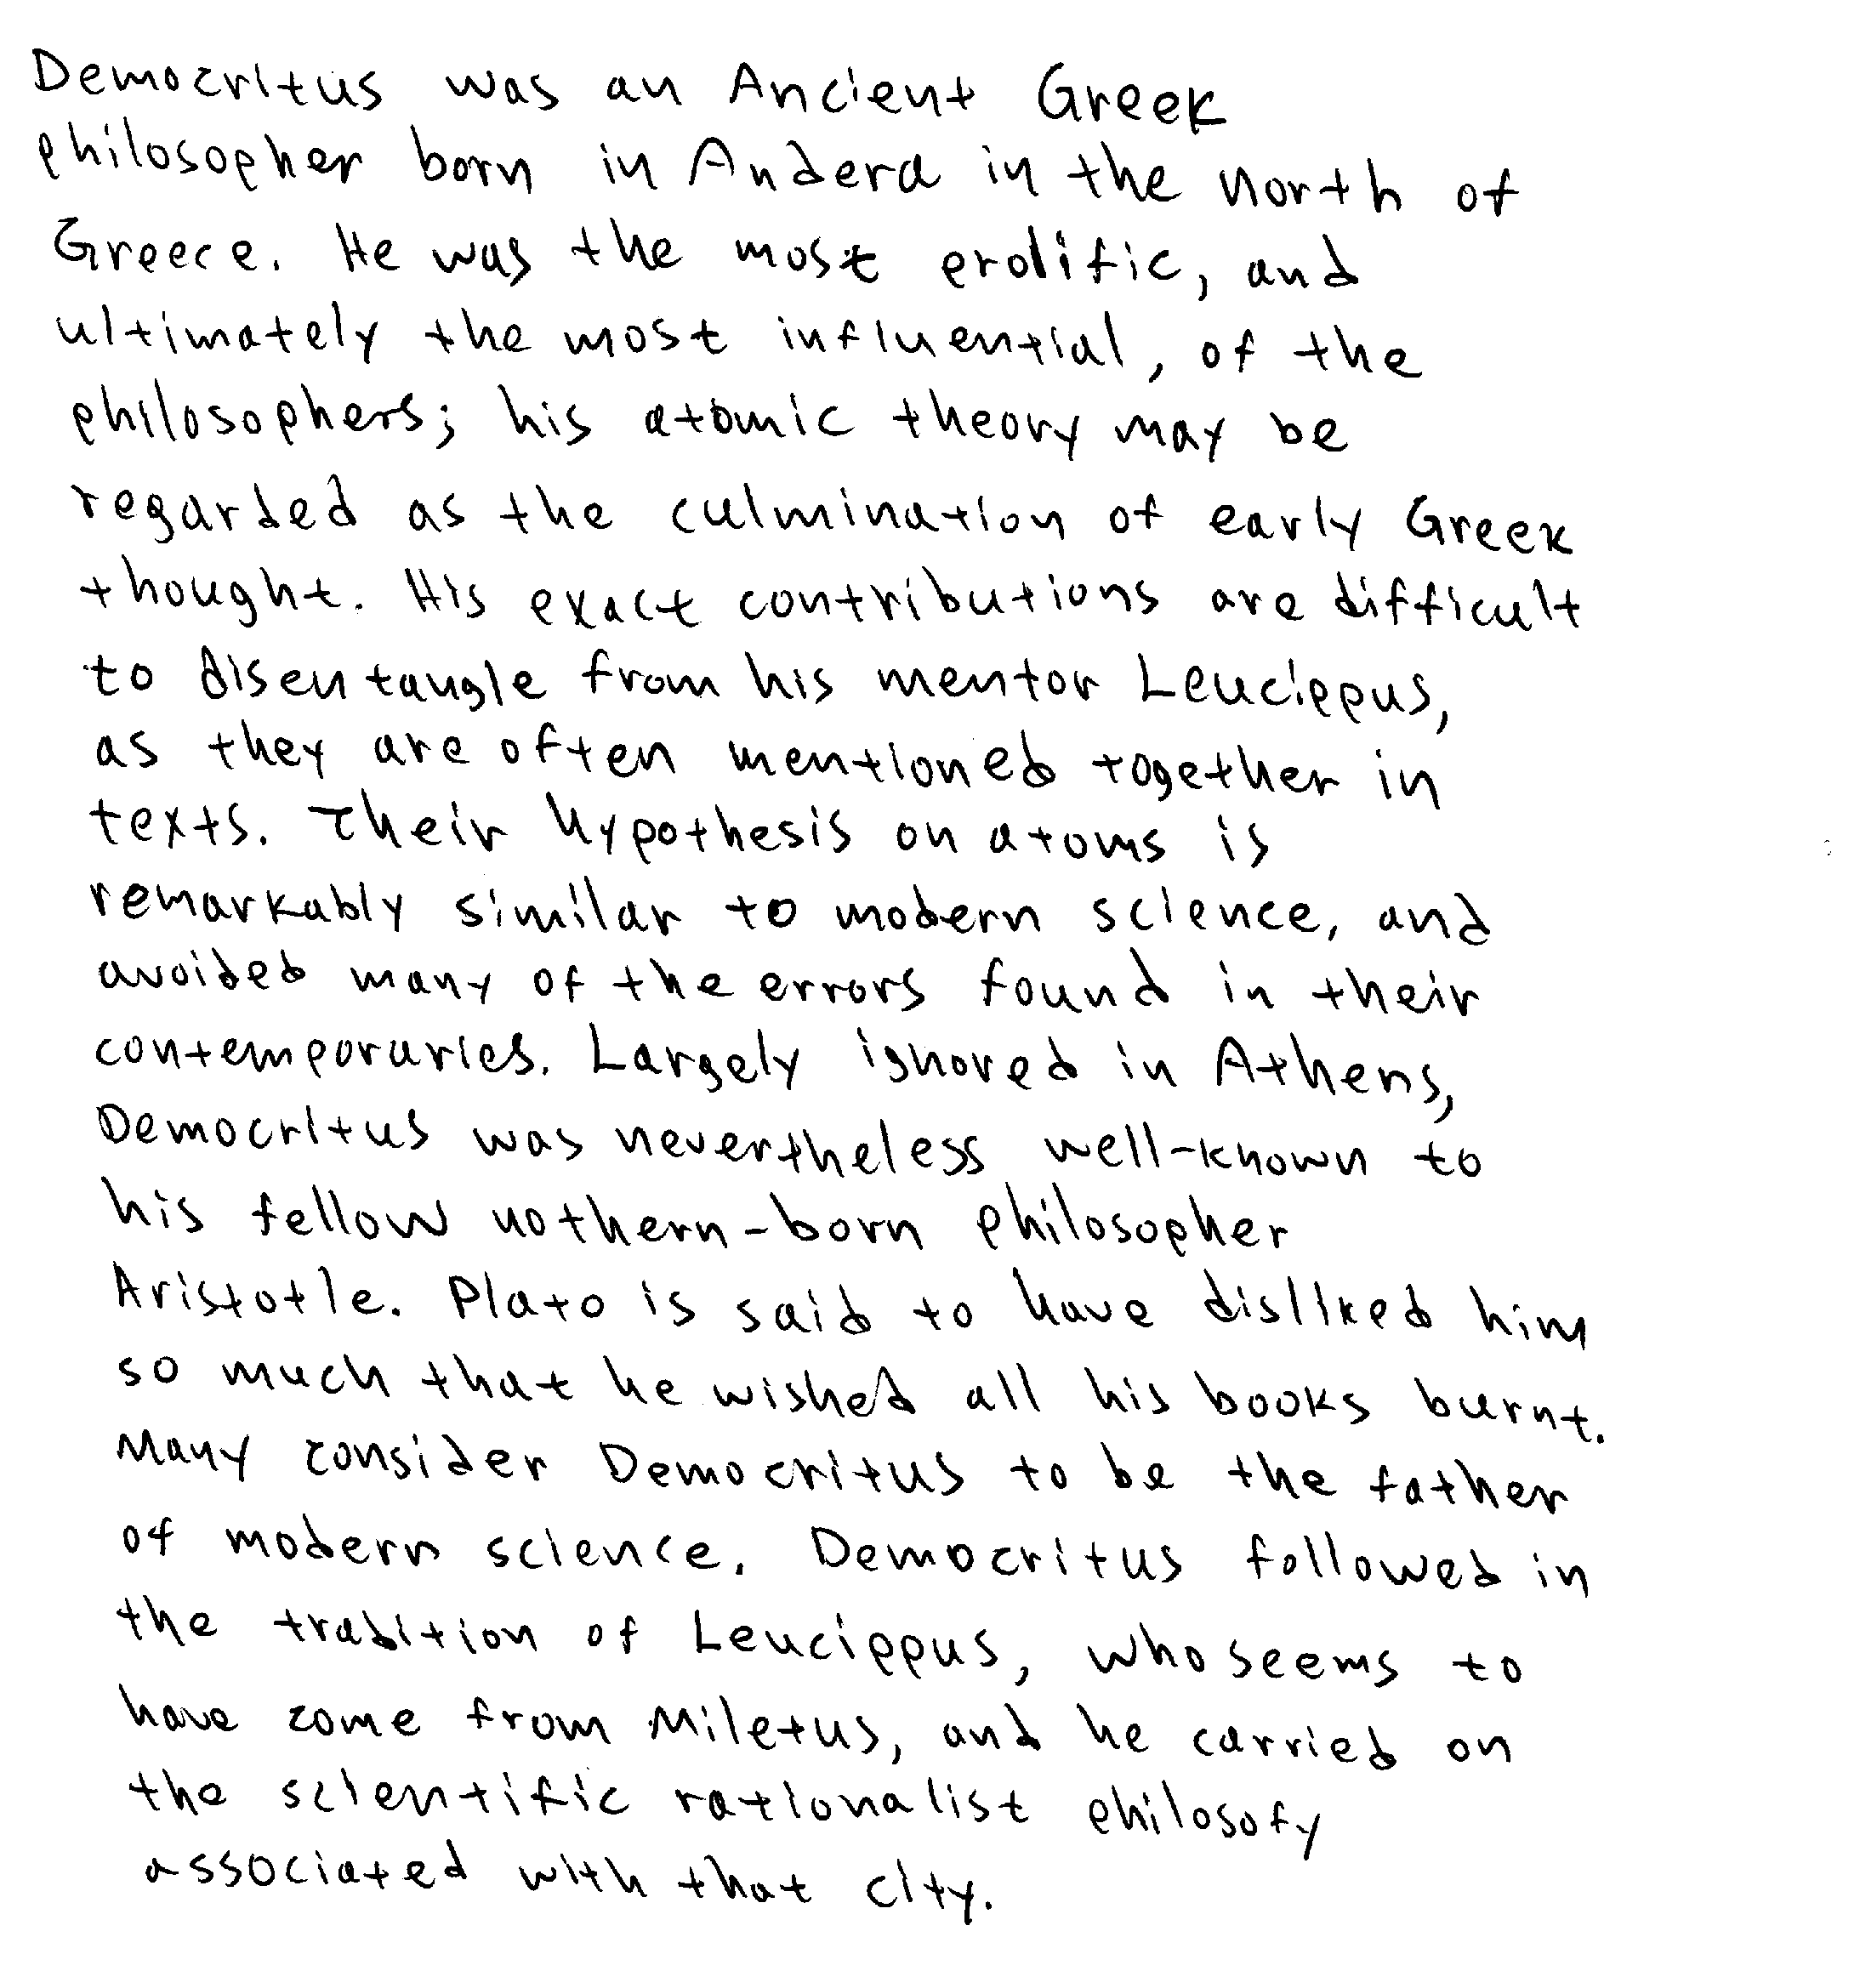 Democritus was an Ancient Greek
philosopher born in Andera in the north of
Greece. He was the most prolific, and
ultimately the most influential, of the
philosophers; his atomic theory may be
regarded as the culmination of early Greek
thought. His exact contributions are difficult
to disentangle from his mentor Leucippus,
as they are often mentioned together in
texts. Their hypothesis on atoms is
remarkably similar to modern science, and
avoided many of the errors found in their
contemporaries. Largely ignored in Athens,
Democritus was nevertheless well-known to
his fellow nothern-born philosopher
Aristotle. Plato is said to have disliked him
so much that he wished all his books burnt.
Many consider Democritus to be the father
of modern science. Democritus followed in
the tradition of Leucippus, who seems to
have come from Miletus, and he carried on
the scientific rationalist philosofy
associated with that city.